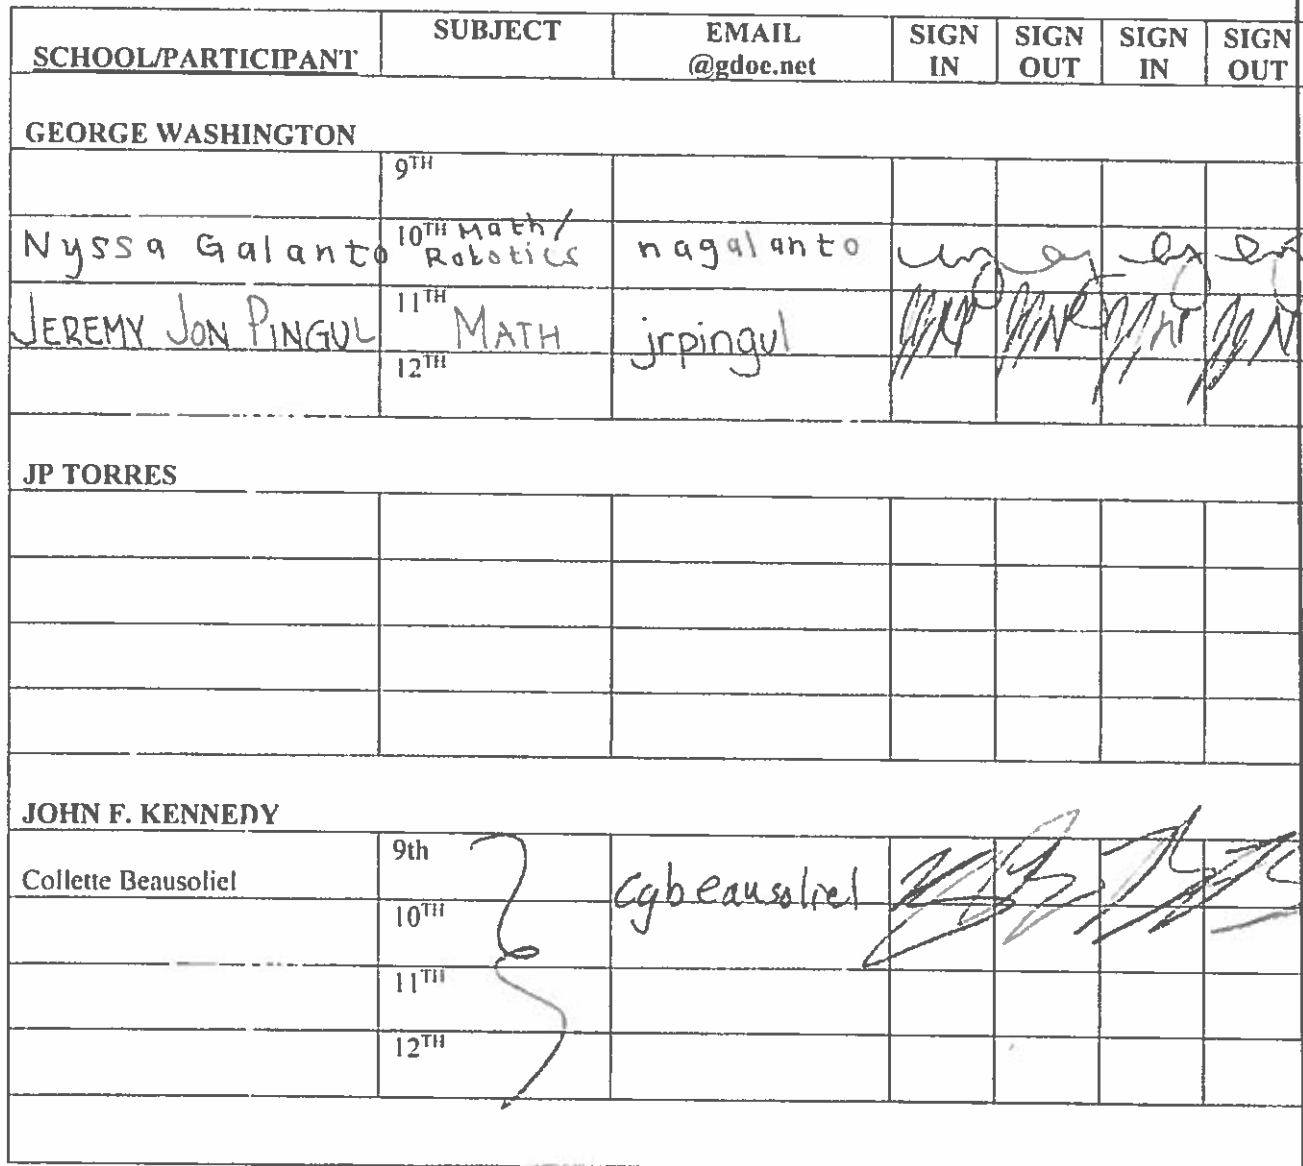 SCHOOL/PARTICIPANT SUBJECT EMAIL @gdoe.net SIGN IN SIGN OUT SIGN IN SIGN OUT
GEORGE WASHINGTON
9TH
Nyssa Galanto 10TH Math/ Robotics nagalanto
JEREMY JON PINGUL 11TH MATH jrpingul
12TH
JP TORRES
JOHN F. KENNEDY
Collette Beausoliel 9th cgbeausoliel
10TH
11TH
12TH